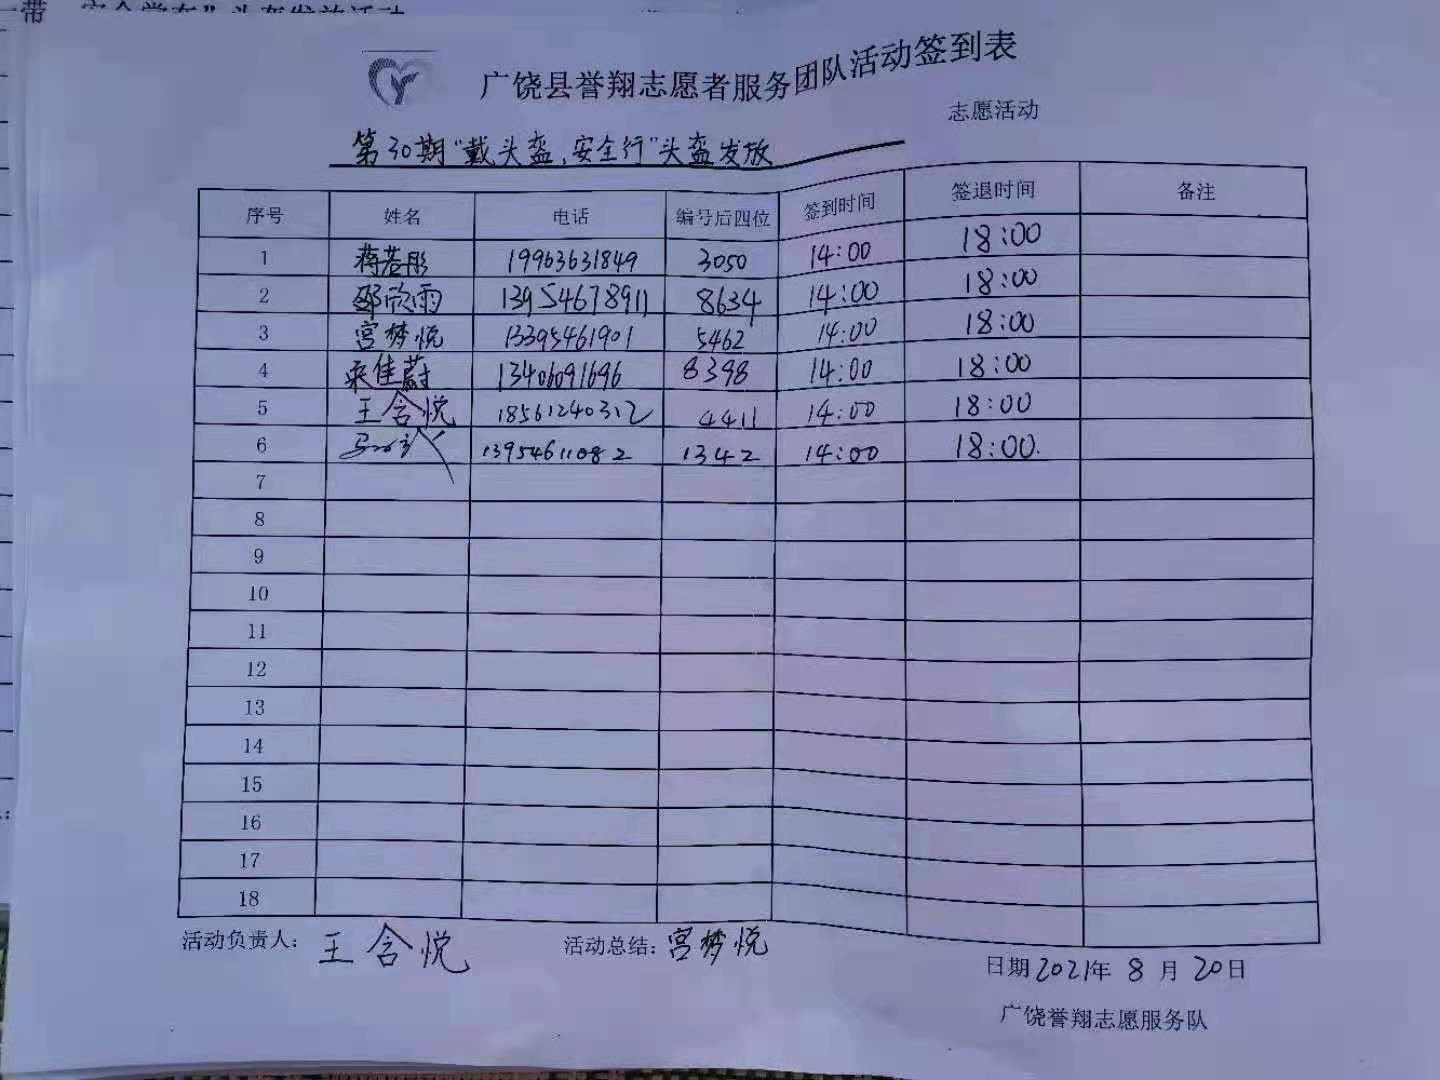 广饶县誉翔志愿者服务团队活动签到表
第30期“戴头盔,安全行”头盔发放 志愿活动
序号 姓名 电话 编号后四位 签到时间 签退时间 备注
1 蒋若彤 19963631849 3050 14:00 18:00
2 邵欣雨 13954678911 8634 14:00 18:00
3 宫梦悦 13395461901 5462 14:00 18:00
4 佳蔚 13406091696 8398 14:00 18:00
5 王含悦 18561240312 4411 14:00 18:00
6 13954611082 1342 14:00 18:00.
7
8
9
10
11
12
13
14
15
16
17
18
活动负责人: 王含悦 活动总结: 宫梦悦
日期 2021年 8 月 20日
广饶誉翔志愿服务队